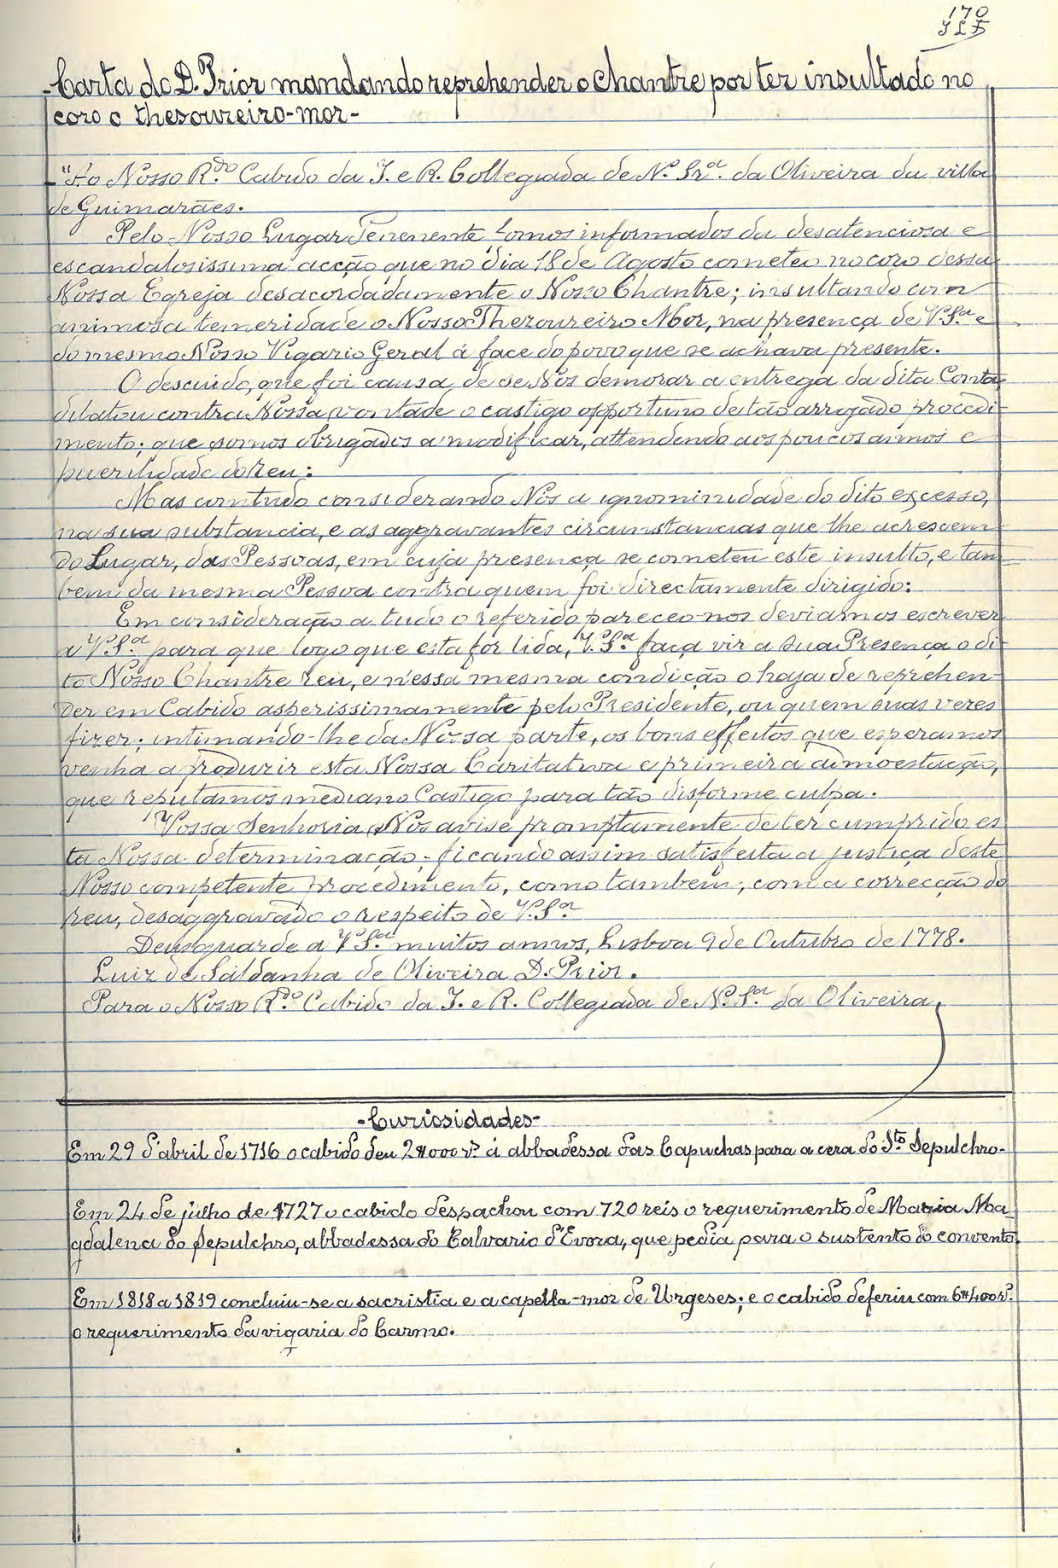 170
-Carta do D. Prior mandando reprehender o Chantre por ter insultado no
coro o thesoureiro-mor-
"Ao Nosso R.do Cabido da I. e R. Collegiada de N. Sr.a da Oliveira da villa
de Guimarães.
Pelo Nosso Lugar Tenenente fomos informados da desatenciosa e
escandalosissima acção que no dia 18 de Agosto cometeo no coro dessa
Nossa Egreja desacordadamente o Nosso Chantre; insultando com
animosa temeridade o Nosso Thezoureiro Mor, na presença de V. S.a e
do mesmo Nosso Vigario Geral á face do povo que se achava presente.
O descuido, que foi causa de se Nos demorar a entrega da dita Conta,
dilatou contra Nossa vontade o castigo opportuno de tão arrojado procedi-
mento; que somos obrigados a modificar, attendendo aos poucos annos e
puerilidade do reu:
Mas comtudo considerando Nós a ignominidade do dito excesso,
na sua substancia, e as aggravantes circunstancias que lhe acrescem
do Lugar, das Pessoas, em cuja presença se cometeu este insulto, e tam
bem da mesma Pessoa contra quem foi directamente dirigido:
Em consideração a tudo o referido pareceo-nos deviamos escrever
a V. S.a para que logo que esta for lida, V. S.a faça vir a sua Presença o di-
to Nosso Chantre reu, e n'essa mesma condição o haja de reprehen-
der em Cabido asperissimamente pelo Presidente, ou quem suas vezes
fizer; intimando-lhe da Nossa parte, os bons effeitos que esperamos
venha a produzir esta Nossa Caritativa e primeira admoestação,
que reputamos mediano Castigo para tão disforme culpa.
Vossa Senhoria Nos avise promptamente de ter cumprido es
ta Nossa determinação; ficando assim satisfeita a justiça deste
Nosso competente procedimento, como tambem, com a correcção do
reu, desaggravado o respeito de V. S.a
Deus guarde a V. S.a muitos annos, Lisboa 9 de Outubro de 1778.
Luiz de Saldanha de Oliveira D. Prior.
Para o Nosso R.do Cabido da I. e R. Collegiada de N. S.a da Oliveira,
-Curiosidades-
Em 29 d'abril de 1716 o cabido deu 2$000 r.s á abbadessa das Capuchas para a cera do S.to Sepulchro.
Em 24 de julho de 1727 o cabido despachou com 720 reis o requerimento de Maria Ma
gdalena do Sepulchro, abbadessa do Calvario d'Evora, que pedia para o sustento do convento.
Em 1818 a 1819 concluiu-se a sacristia e a capella-mor de Urgeses; e o cabido deferiu com 6$400 r.s
o requerimento da vigaria do Carmo.